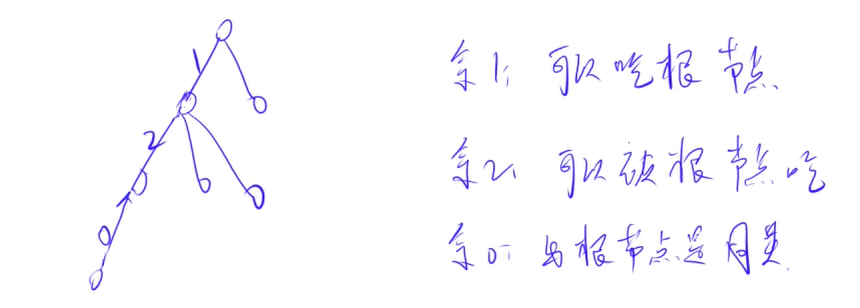 1
2
0
余1: 可以吃根节点
余2: 可以被根节点吃
余0: 与根节点是同类